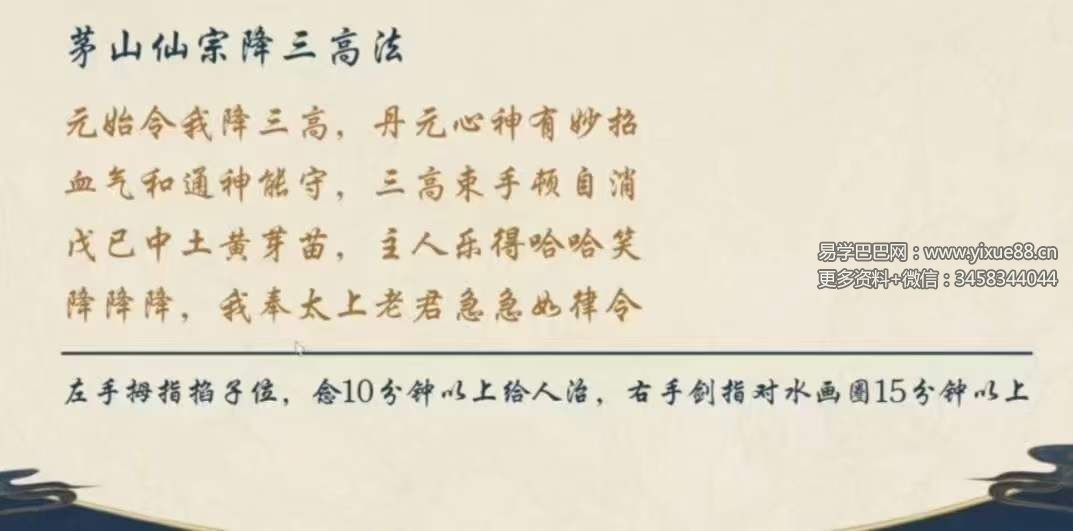 茅山仙宗降三高法
元始令我降三高，丹元心神有妙招
血气和通神能守，三高束手顿自消
戊己中土黄芽苗，主人乐得哈哈笑
降降降，我奉太上老君急急如律令
易学巴巴网：www.yixue88.cn
更多资料+微信：3458344044
左手拇指掐子位，念10分钟以上给人治，右手剑指对水画圈15分钟以上